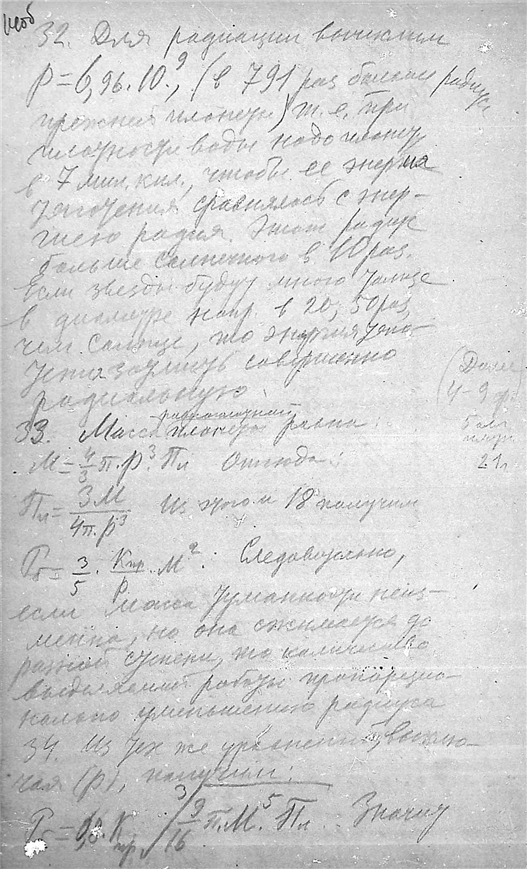 32. Для радиации вычислим
р=6,96.10⁹, (в 791 раз больше радиуса
прежней планеты) т.е. при
плотности воды надо планету
в 7 мил. кил., чтобы ее энергия
тяготения сравнялась с энер-
гиею радия. Этот радиус
больше солнечного в 10 раз.
Если звезды будут много больше
в диаметре напр. в 20, 50 раз,
чем Солнце, то энергия тяго-
тения совершенно
радиальную.
33. Масса планеты равна:
М=4/3 π.р³.Пл Отсюда:
Пл=3М/4π.р³ Из этого и 18 получим
Рб=3/5.Кпр/р.М². Следовательно,
если масса туманности неиз-
менна, но она сжимается до
разной степени, то количество
выделяемой работы пропорцио-
нально уменьшению радиуса
34. Из тех же уравнений, исклю-
чая (р), получим:
Рб=0,6.Кпр ∛9/16 π.М⁵.Пл. Значит
(Далее
4-9
21